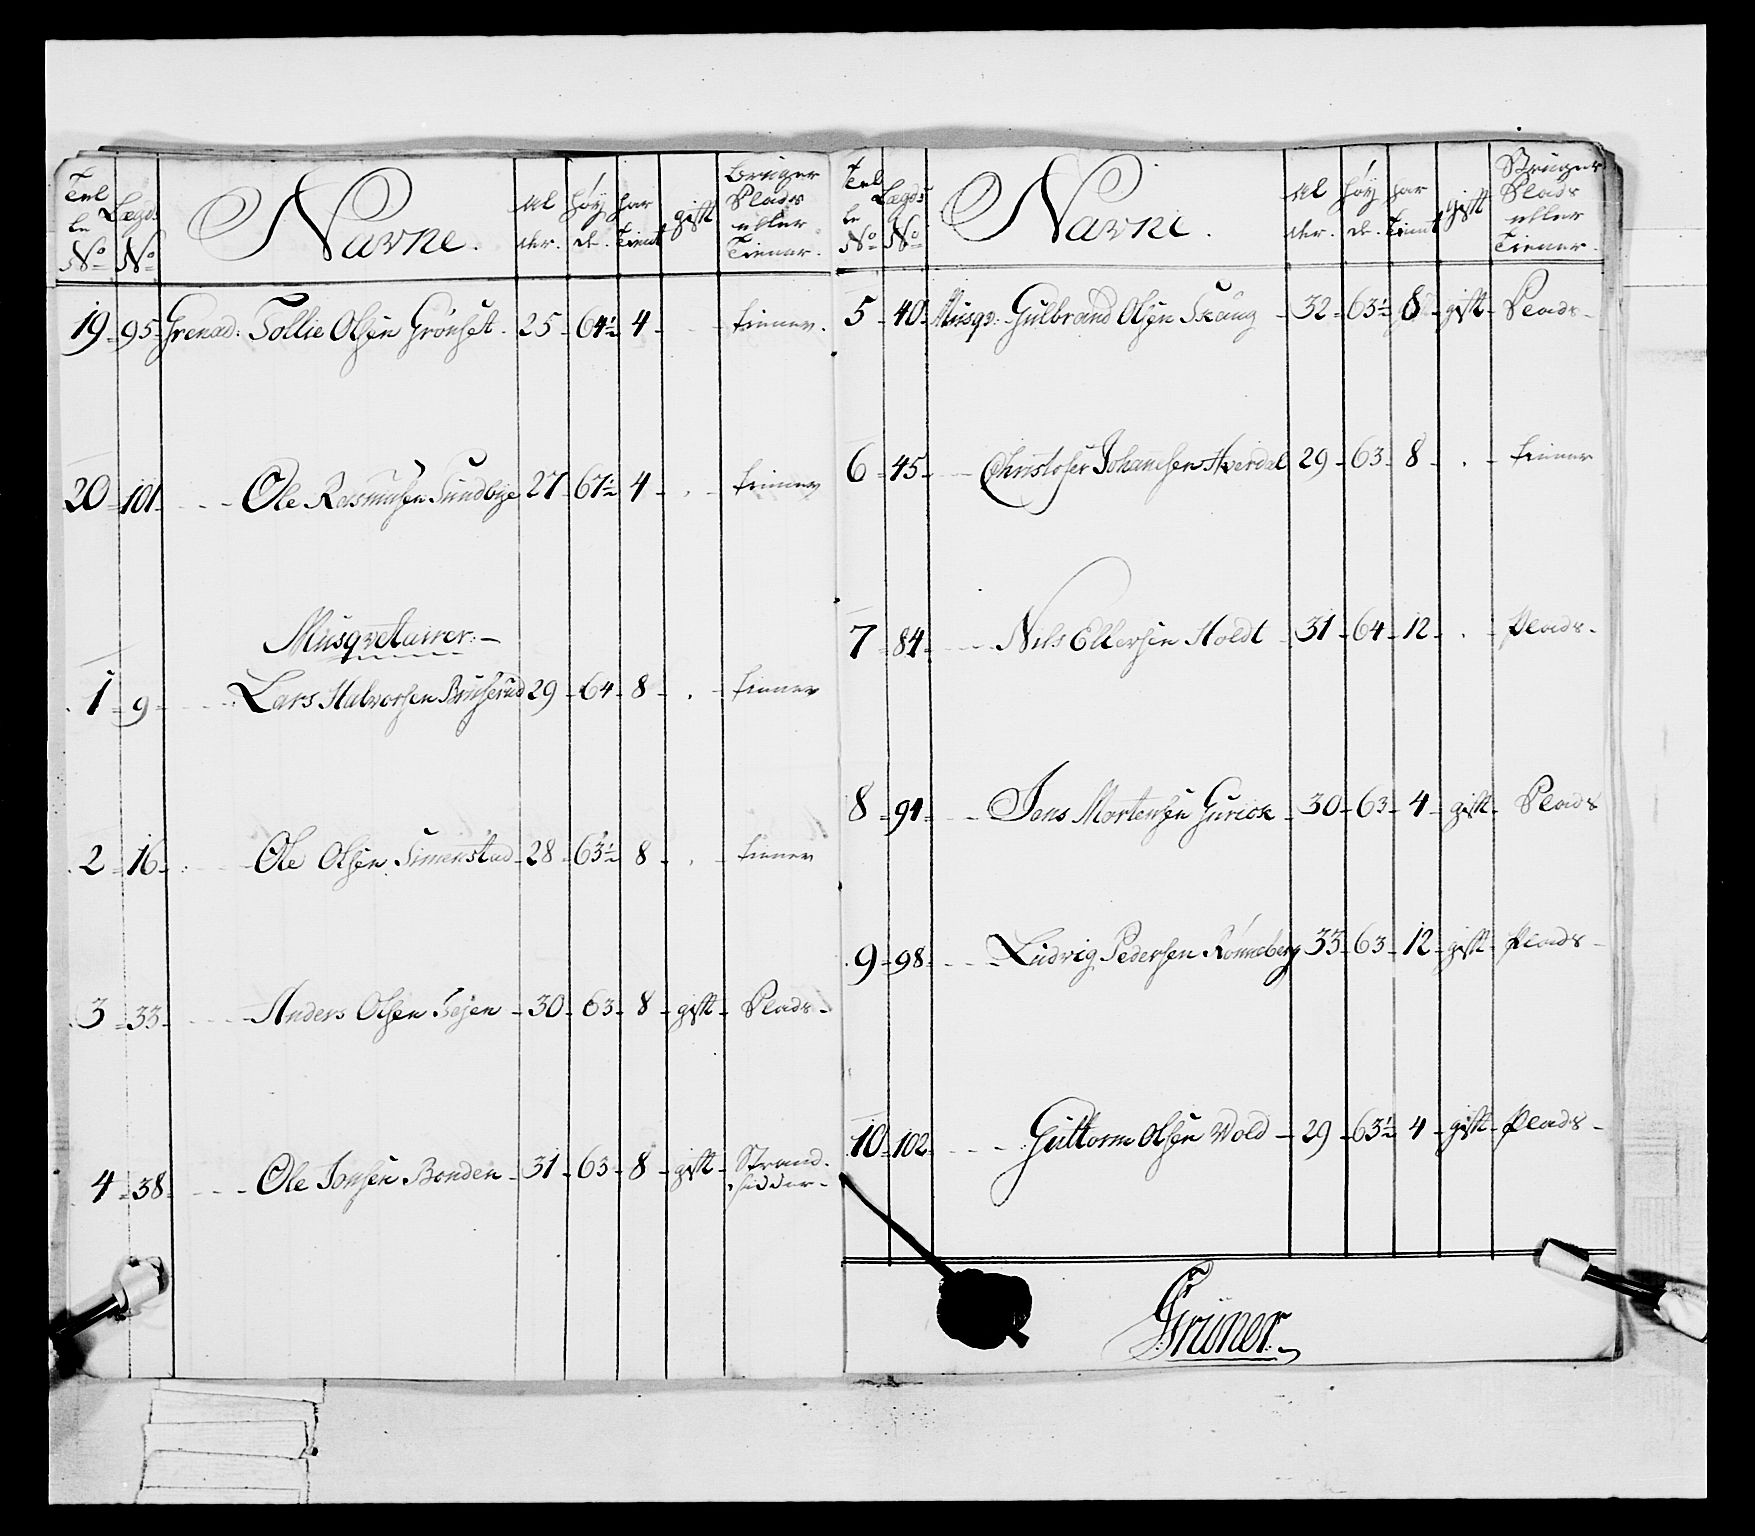 Tel le No Lægds No Navne. Al der. høy de. har Tient gift Bruger Plads eller Tiener.
19 95 Grenad: Tollie Olsen Grönset 25 64½ 4 - tiener.
20 101 Ole Rasmusen Sundbye 27 67½ 4 . tiener
Musqvetairer:
1 9 Lars Halvorsen Bruserud 29 64 8 . tiener
2 16 Ole Olsen Simenstad 28 63½ 8 . tiener
3 33 Anders Olsen 30 63 8 gift Plads
4 38 Ole Jonsen Bonden 31 63 8 gift Strand sidder
Tel le No Lægds No Navne. Al der. høy de. har Tient gift Bruger Plads eller Tiener.
5 40 Musqv: Gulbrand Olsen Skaug 32 63½ 8 gift Plads
6 45 Christofer Johansen Hverdal 29 63 8 . tiener
7 84 Nils Ellersen Holdt 31 64 12 . Plads
8 94 Jens Mortensen 30 63 4 gift Plads
9 98 Ludvig Pedersen Rönneberg 33 63 12 gift Plads
10 102 Guttorm Olsen Wold 29 63½ 4 gift Plads
Grüner